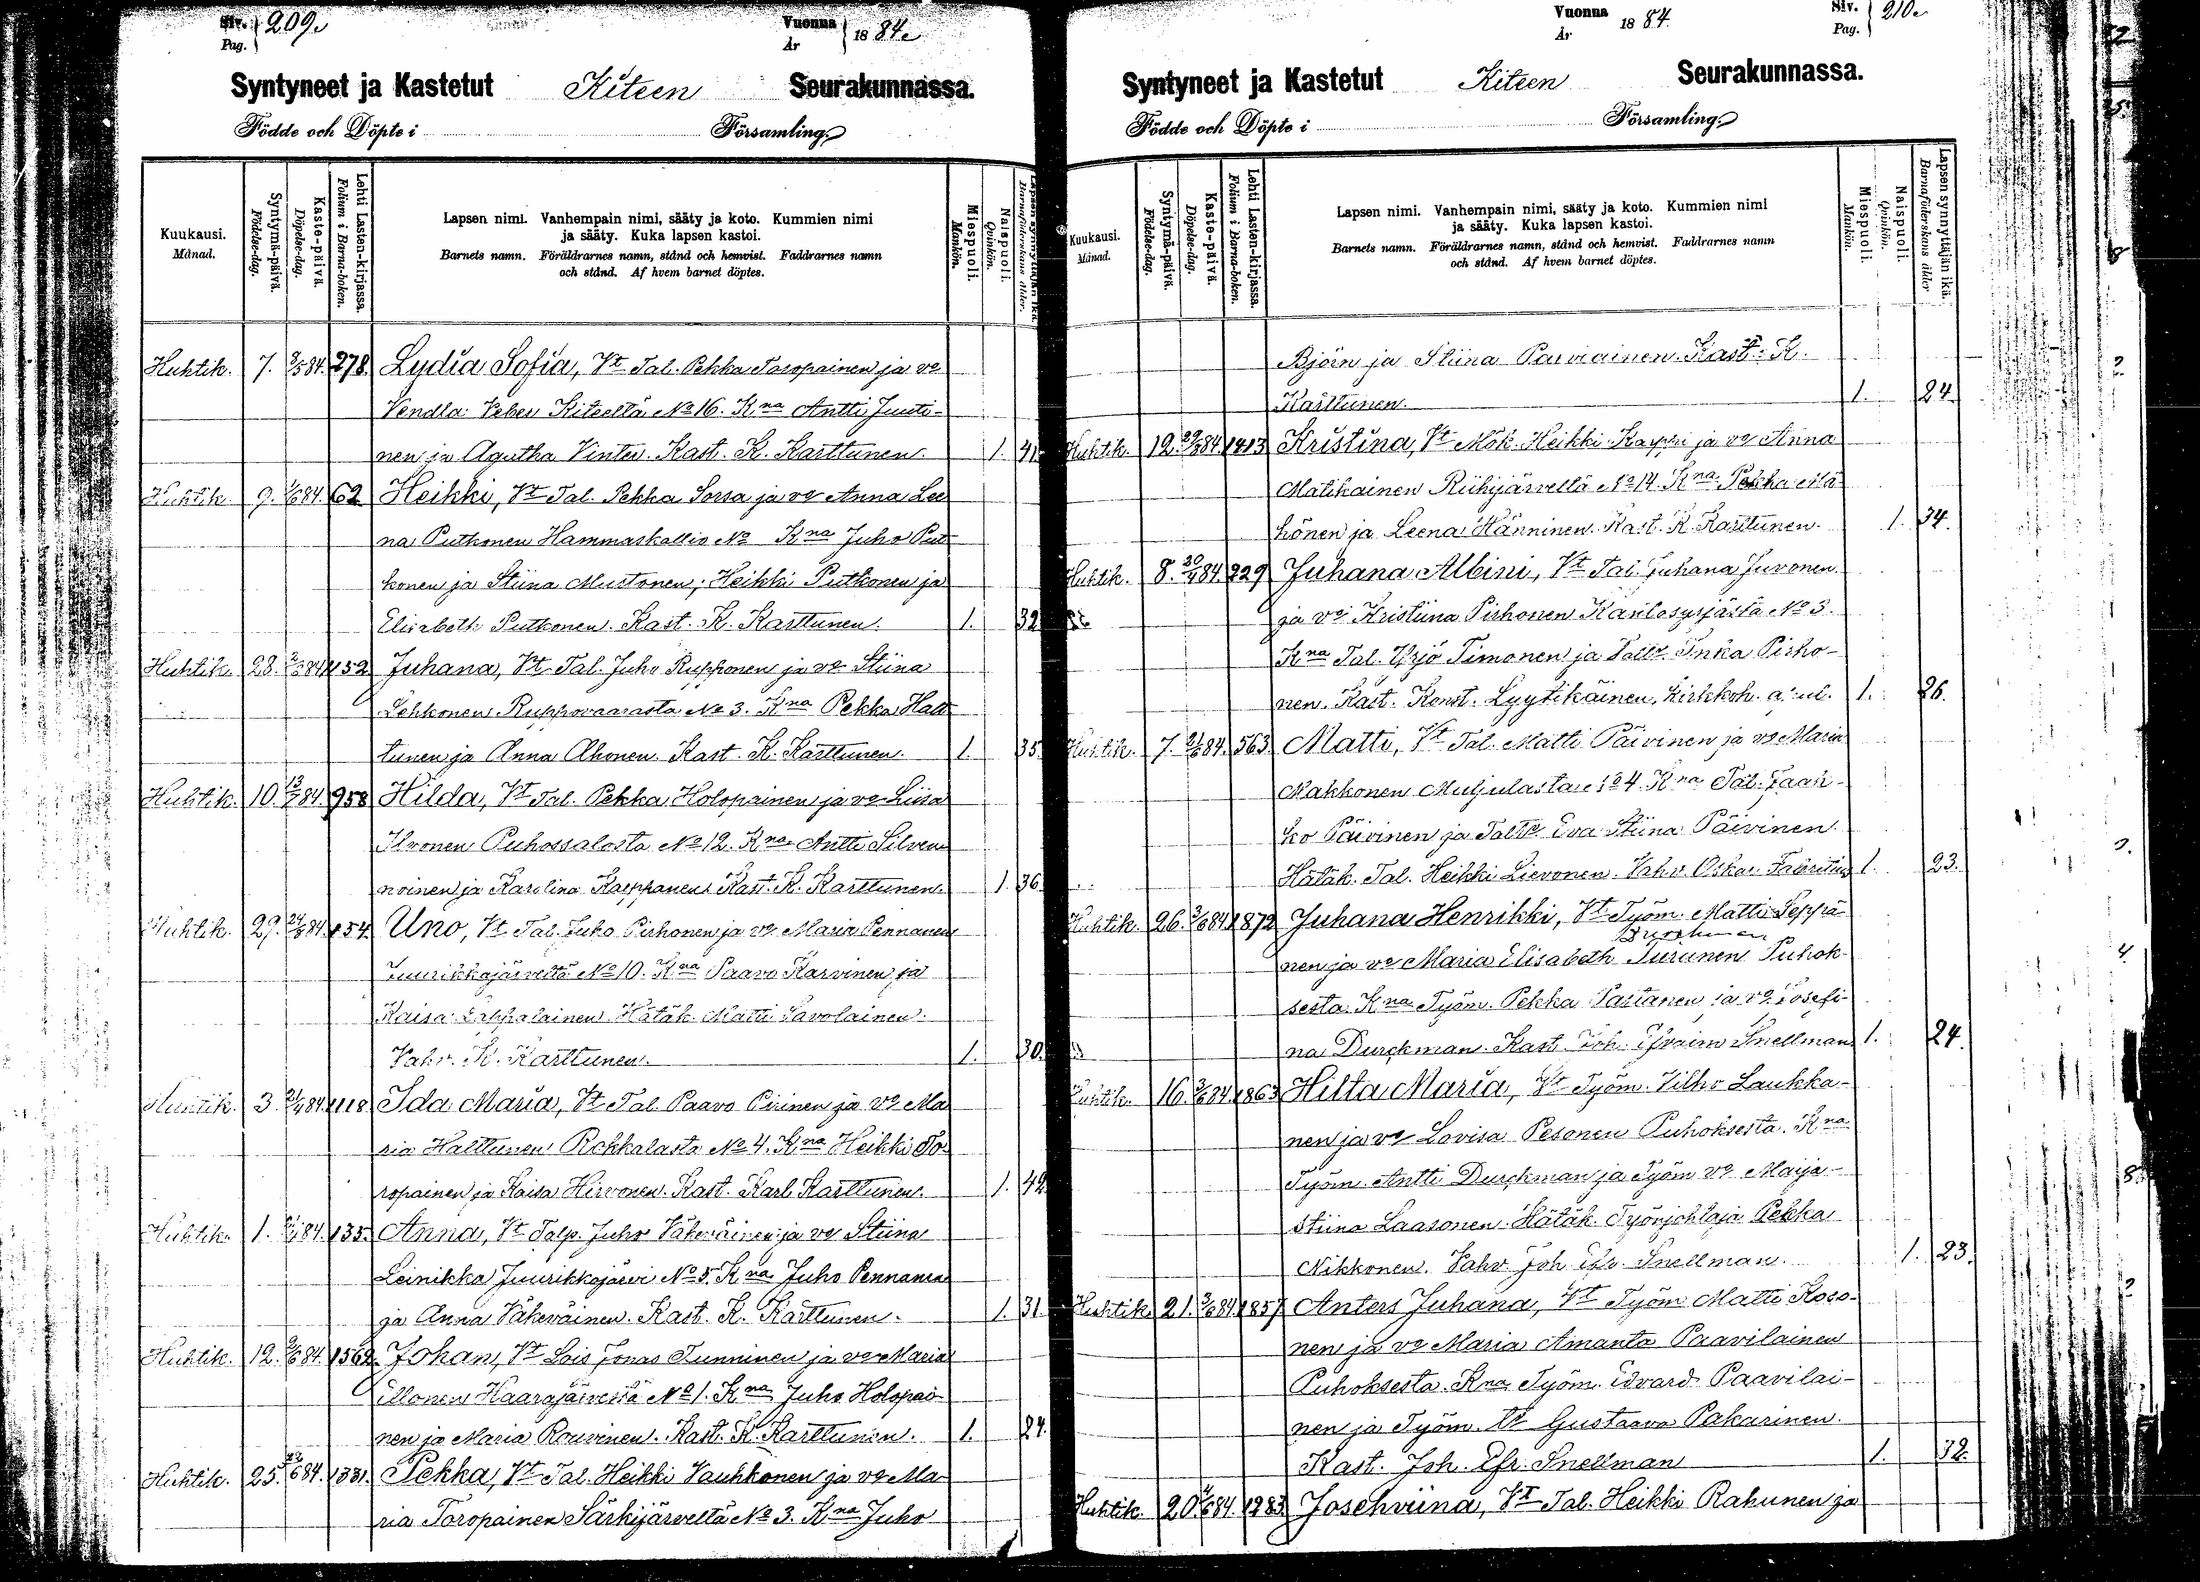 Siv. Pag. 209.
Vuonna År 1884.
Syntyneet ja Kastetut Kiteen Seurakunnassa.
Födde och Döpte i Församling.
Kuukausi. Månad.
Syntymä-päivä. Födelse-dag.
Kaste-päivä. Döpelse-dag.
Lehti Lasten-kirjassa. Folium i Barna-boken.
Lapsen nimi. Vanhempain nimi, sääty ja koto. Kummien nimi
ja sääty. Kuka lapsen kastoi.
Barnets namn. Föräldrarnes namn, stånd och hemvist. Faddrarnes namn
och stånd. Af hvem barnet döptes.
Miespuoli. Mankön.
Naispuoli. Qvinkön.
Lapsen synnyttäjän ikä. Barnaföderskans ålder.
Huhtik. 7. 84. 278. Lydia Sofia, Vt Tal. Pekka Taropainen ja vo
Vendla Veber Kiteeltä No 16. Kna Antti Juuti-
nen ja Agatha Vinter. Kast. K. Karttunen. 1. 41.
Huhtik. 9. 84. 62 Heikki, Vt Tal. Pekka Sorsa ja vo Anna Lee
na Puthonen Hammaskallio No Kna Juho Put
konen ja Stiina Mustonen; Heikki Putkonen ja
Elisabeth Putkonen. Kast. K. Karttunen. 1. 32
Huhtik. 28. 84. 452 Juhana, Vt Tal. Juho Rupponen ja vo Stiina
Lehkonen Ruppovaarasta No 3. Kna Pekka Halt
tunen ja Anna Ahonen. Kast. K. Karttunen. 1. 35.
Huhtik. 10. 84. 958 Hilda, Vt Tal. Pekka Holopainen ja vo Liisa
Ilvonen Puhossalosta No 12. Kna Antti Silven
noinen ja Karolina Kaappanen. Kast. K. Karttunen. 1. 36.
Huhtik. 29. 84. 154. Uno, Vt Tal. Juho Pirhonen ja vo Maria Pennanen
Juurikkajärveltä No 10. Kna Paavo Karvinen ja
Kaisa Lappalainen. Hätäk. Matti Savolainen.
Vahv. K. Karttunen. 1. 30.
Huhtik. 3. 84. 1118 Ida Maria, Vt Tal. Paavo Pirinen ja vo Ma
ria Halttunen Rokkalasta No 4. Kna Heikki To
ropainen ja Kaisa Hirvonen. Kast. Karl Karttunen. 1. 42
Huhtik. 1. 84. 135. Anna, Vt Talp. Juho Väkeväinen ja vo Stiina
Leinikka Juurikkajärvi No 5. Kna Juho Pennanen
ja Anna Väkeväinen. Kast. K. Karttunen. 1. 31.
Huhtik. 12. 84. 1562. Johan, Vt Lois Jonas Tunninen ja vo Maria
Ellonen Haarajärveltä No 1. Kna Juho Holopai-
nen ja Maria Rouvinen. Kast. K. Karttunen. 1. 24.
Huhtik. 25. 84. 1331. Pekka, Vt Tal. Heikki Vauhkonen ja vo Ma
ria Toropainen Särkijärveltä No 3. Kna Juho
Vuonna År 1884.
Siv. Pag. 210.
Syntyneet ja Kastetut Kiteen Seurakunnassa.
Födde och Döpte i Församling.
Kuukausi. Månad.
Syntymä-päivä. Födelse-dag.
Kaste-päivä. Döpelse-dag.
Lehti Lasten-kirjassa. Folium i Barna-boken.
Lapsen nimi. Vanhempain nimi, sääty ja koto. Kummien nimi
ja sääty. Kuka lapsen kastoi.
Barnets namn. Föräldrarnes namn, stånd och hemvist. Faddrarnes namn
och stånd. Af hvem barnet döptes.
Miespuoli. Mankön.
Naispuoli. Qvinkön.
Lapsen synnyttäjän ikä. Barnaföderskans ålder
Björn ja Stiina Parviainen. Kast. K.
Karttunen. 1. 24.
Huhtik. 12. 84. 1413 Kristina, Vt Mök. Heikki Kappi ja vo Anna
Matikainen Riihijärveltä No 14. Kna Pekka Mä
hönen ja Leena Hänninen. Kast. K. Karttunen. 1. 34.
Huhtik. 8. 84. 229 Juhana Albini, Vt Tal. Juhana Juvonen
ja vo Kristiina Pirhonen No 3.
Kna Tal. Yrjö Timonen ja Inka Pirho-
nen. Kast. Konst. Lyytikäinen, Kirkkoh. 1. 26.
Huhtik. 7. 84. 563. Matti, Vt Tal. Matti Päivinen ja vo Maria
Nakkonen Muljulasta No 4. Kna Tal. Jaak-
ko Päivinen ja Eva Stiina Päivinen.
Hätäk. Tal. Heikki Lievonen. Vahv. Oskar Fabritius 1. 23.
Huhtik. 26. 84. 1872 Juhana Henrikki, Vt Työm. Matti Seppä-
Durchman
nen ja vo Maria Elisabeth Turunen Puhok-
sesta. Kna Työm. Pekka Partanen ja vo Josefi-
na Durckman. Kast. Joh. Efraim Snellman 1. 24.
Huhtik. 16. 84. 1863 Hilta Maria, Vt Työm. Vilho Laukka-
nen ja vo Lovisa Pesonen Puhoksesta. Kna
Työm. Antti Durckman ja Työm. vo Maija-
Stiina Laasonen. Hätäk. Työnjohtaja Pekka
Nikkonen. Vahv. Joh. Efr. Snellman. 1. 23.
Huhtik. 21. 84. 1857 Anters Juhana, Vt Työm. Matti Koso-
nen ja vo Maria Amanta Paavilainen
Puhoksesta. Kna Työm. Edvard Paavilai-
nen ja Työm. vo Gustaava Pakarinen.
Kast. Joh. Efr. Snellman 1. 32.
Huhtik. 20. 84. 1283. Josehviina, Vt Tal. Heikki Rahunen ja